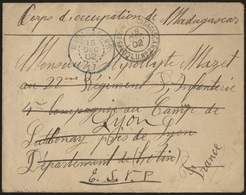 Corps d'occupation de Madagascar
Monsieur Hyppolyte Mazet
au 22me Régiment d'Infanterie
4e Compagnie au Camp de
Lyon
Sathonay près de Lyon
Département de
France
02
02